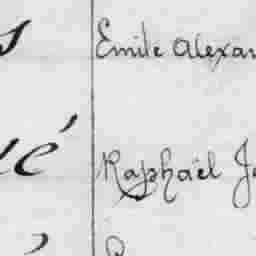 s Emile Alexan
ué Raphaël J